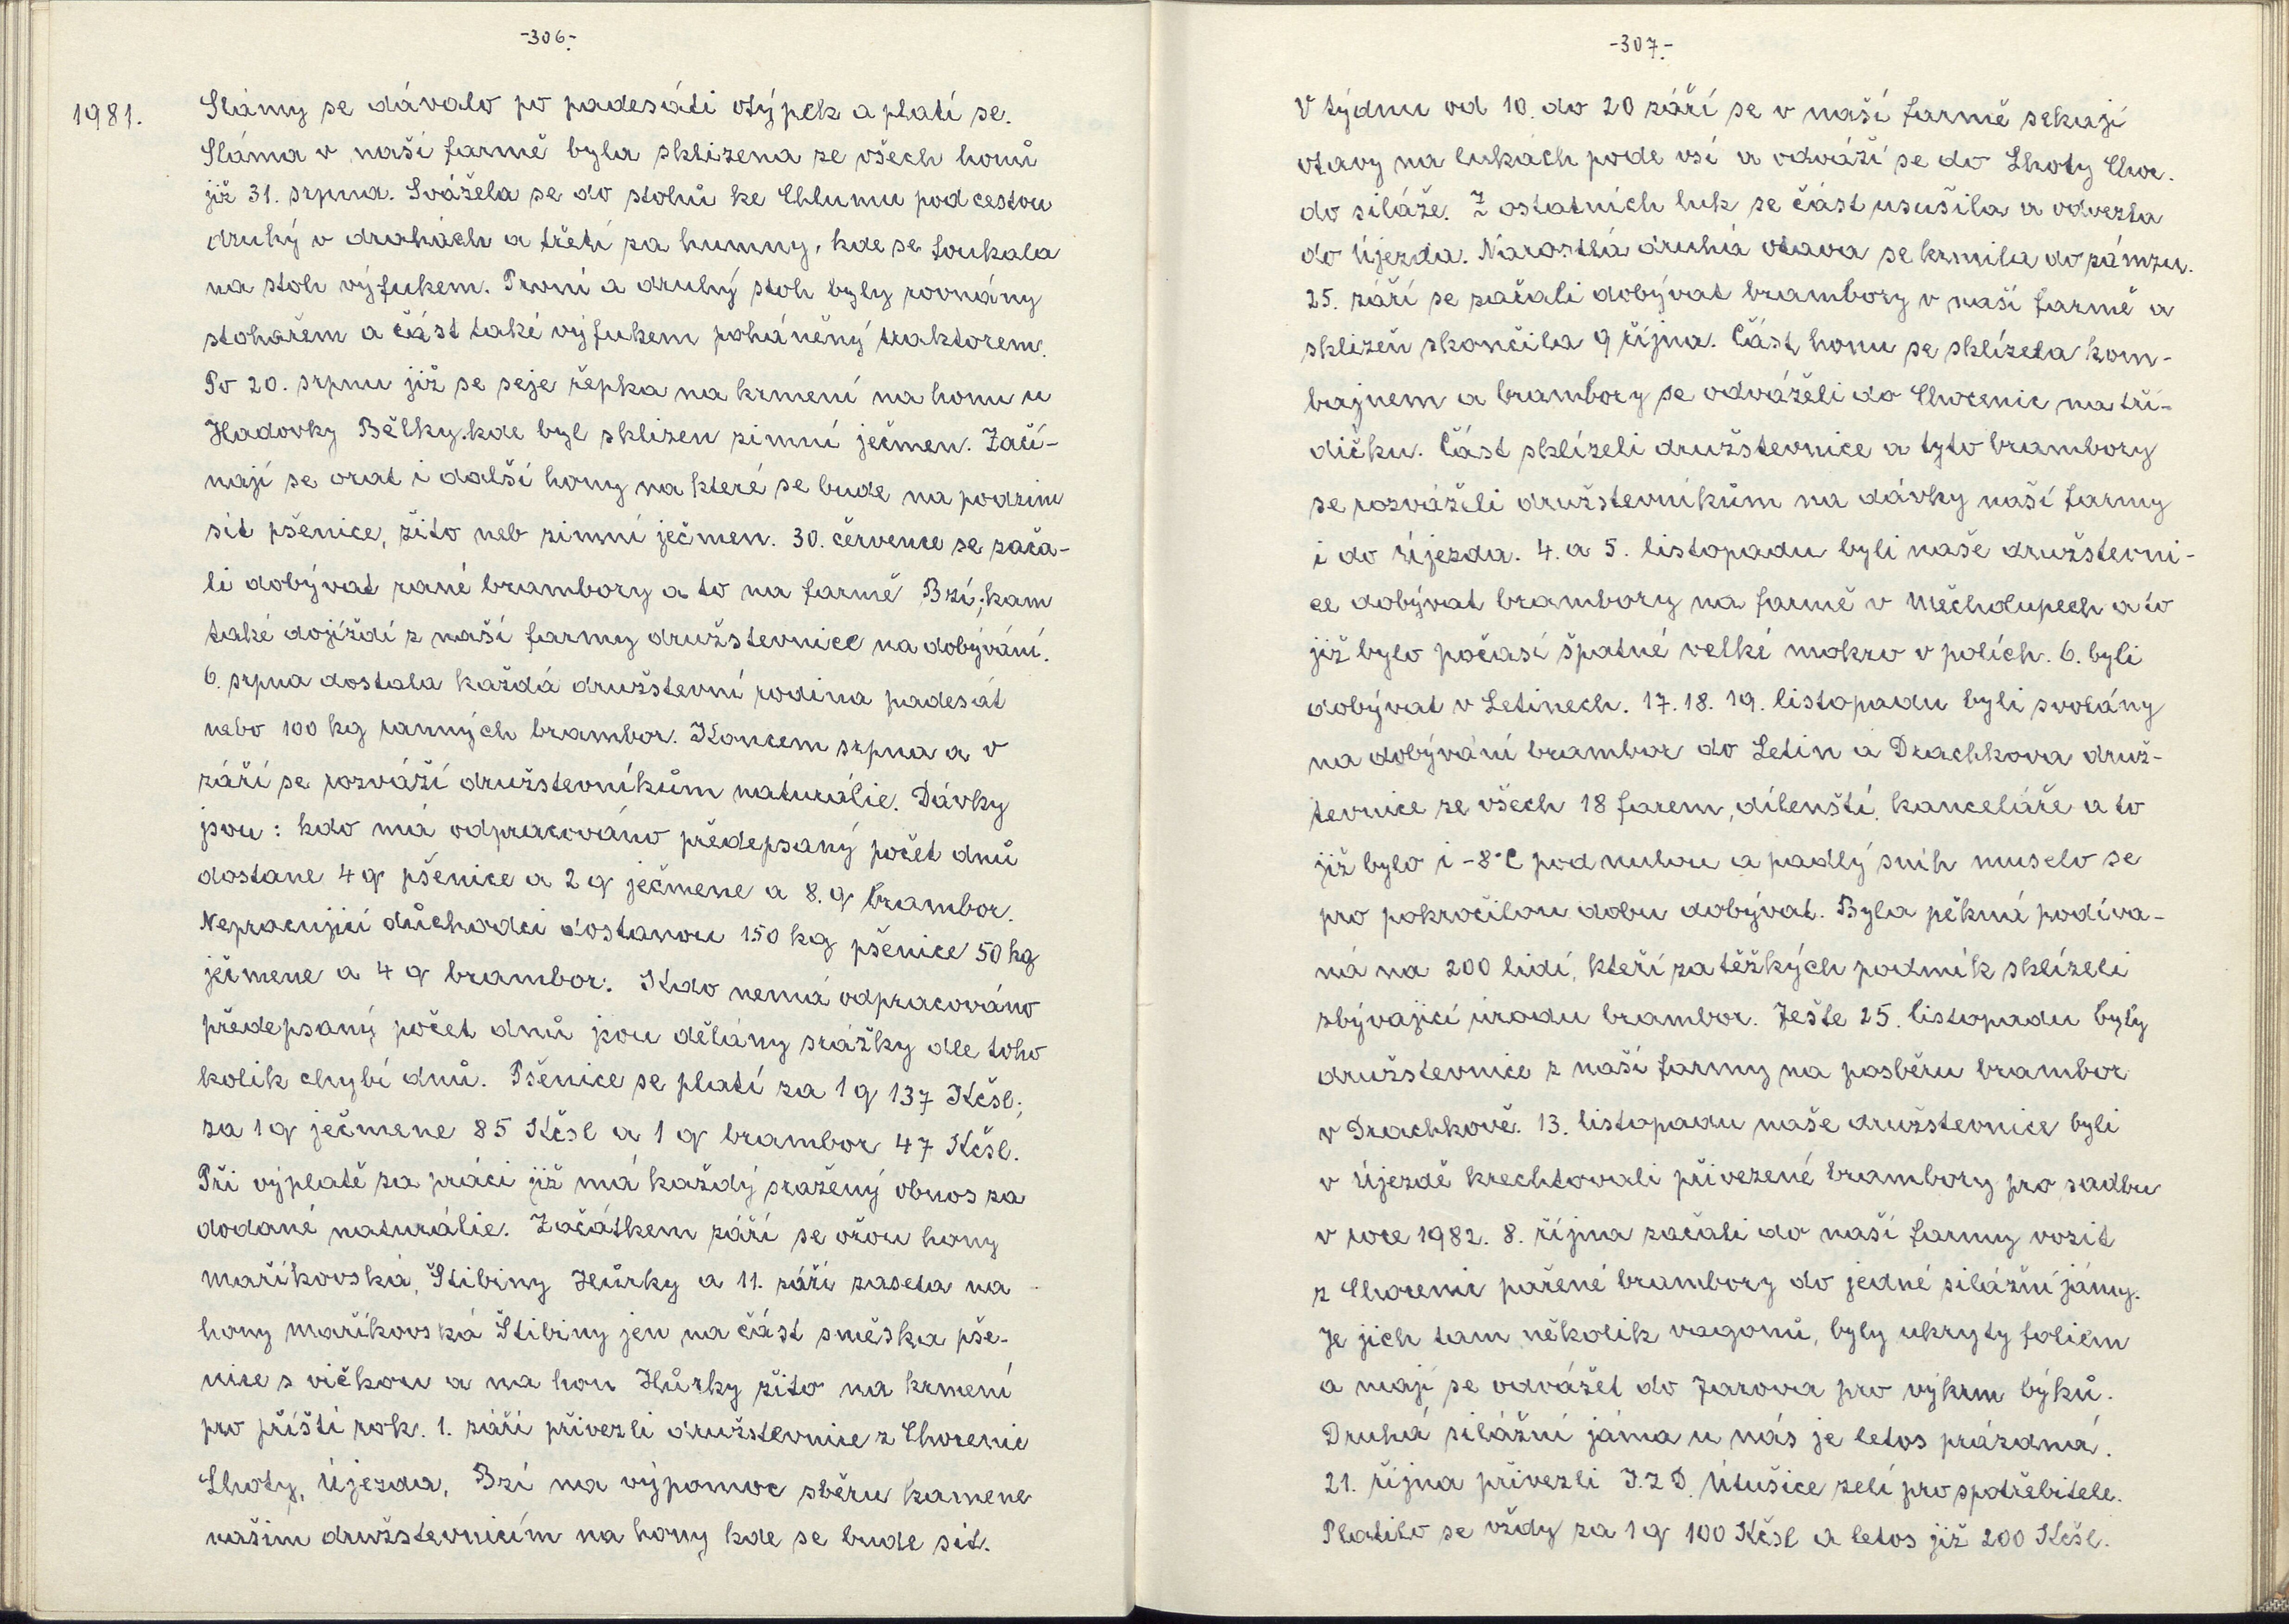 -306-
1981.
Slámy se dávalo po padesáti otýpek a platí se.
Sláma v naší farmě byla sklizena ze všech honů
již 31. srpna. Svážela se do stohů ke Chlumu pod cestou
druhý v drahách a třetí za humny, kde se foukala
na stoh výfukem. První a druhý stoh byly rovnány
stohařem a část také výfukem poháněný traktorem.
Po 20. srpnu již se seje řepka na krmení na honu u
Hadovky Bělky.kde byl sklizen zimní ječmen. Začí-
nají se orat i další hony na které se bude na podzim
sít pšenice, žito neb zimní ječmen. 30. července se zača-
li dobývat rané brambory a to na farmě Bzí, kam
také dojíždí z naší farmy družstevnice na dobývání.
6. srpna dostala každá družstevní rodina padesát
nebo 100 kg ranných brambor. Koncem srpna a v
září se rozváží družstevníkům naturálie. Dávky
jsou: kdo má odpracováno předepsaný počet dnů
dostane 4 q pšenice a 2 q ječmene a 8. q brambor.
Nepracující důchodci dostanou 150 kg pšenice 50 kg
ječmene a 4 q brambor. Kdo nemá odpracováno
předepsaný počet dnů jsou dělány srážky dle toho
kolik chybí dnů. Pšenice se platí za 1 q 137 Kčsl,
za 1 q ječmene 85 Kčsl a 1 q brambor 47 Kčsl.
Při výplatě za práci již má každý sražený obnos za
dodané naturálie. Začátkem září se ořou hony
Maříkovská, Štibiny Hůrky a 11. září zaseta na
hony Maříkovská Štibiny jen na část směska pše-
nice s vičkou a na hon Hůrky žito na krmení
pro příští rok. 1. září přivezli družstevnice z Chocenic
Lhoty, Újezda, Bzí na výpomoc sběru kamene
našim družstevnicím na hony kde se bude sít.
-307-
V týdnu od 10. do 20 září se v naší farmě sekají
otavy na lukách pode vsí a odváží se do Lhoty Choc.
do siláže. Z ostatních luk se část usušila a odvezla
do Újezda. Narostlá druhá otava se krmila do zámzu.
25. září se začali dobývat brambory v naší farmě a
sklizeň skončila 9 října. Část honu se sklízela kom-
bajnem a brambory se odváželi do Chocenic na tří-
dičku. Část sklízeli družstevnice a tyto brambory
se rozváželi družstevníkům na dávky naší farmy
i do Újezda. 4. a 5. listopadu byli naše družstevni-
ce dobývat brambory na farmě v Měcholupech a to
již bylo počasí špatné velké mokro v polích. 6. byli
dobývat v Letinech. 17. 18. 19. listopadu byli svolány
na dobývání brambor do Letin a Drachkova druž-
tevnice ze všech 18 farem, dílenští, kanceláře a to
již bylo i -8°C pod nulou a padlý sníh muselo se
pro pokročilou dobu dobývat. Byla pěkná podíva-
ná na 200 lidí, kteří za těžkých podmík sklízeli
zbývající úrodu brambor. Ješte 25. listopadu byly
družstevnice z naší farmy na posběru brambor
v Drachkově. 13. listopadu naše družstevnice byli
v Újezdě krechtovali přivezené brambory pro sadbu
v roce 1982. 8. října začali do naší farmy vozit
z Chocenic pařené brambory do jedné silážní jámy.
Je jich tam několik vagonů, byly ukryty foliem
a mají se odvážet do Žarova pro výkrm býků.
Druhá silážní jáma u nás je letos prázdná.
21. října přivezli J.Z D. Útušice zelí pro spotřebitele.
Platilo se vždy za 1 q 100 Kčsl a letos již 200 Kčsl.